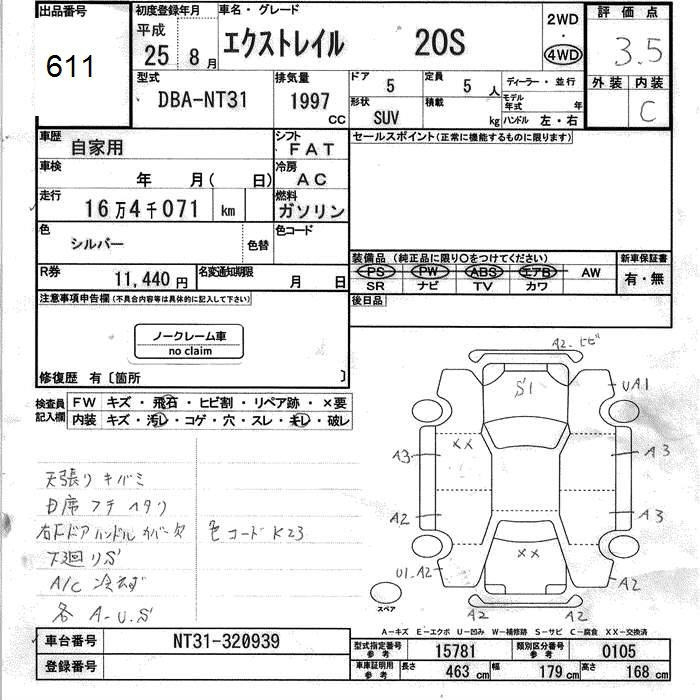 出品番号
611
初度登録年月
平成
25 8月
車名・グレード
エクストレイル 20S
2WD
・
4WD
評価点
3.5
外装 内装
C
型式
DBA-NT31
排気量
1997
CC
ドア
5
定員
5 人
形状
SUV
積載
kg
ディーラー・並行
モデル年式 年
ハンドル 左・右
車歴
自家用
シフト
FAT
車検
年 月( 日)
冷房
AC
走行
16万4千071 km
燃料
ガソリン
色
シルバー
色替
色コード
R券
11,440円
名変通知期限
月 日
セールスポイント(正常に機能するものに限ります)
装備品(純正品に限り○をつけてください)
PS PW ABS エアB AW
SR ナビ TV カワ
新車保証書
有・無
後日品
注意事項申告欄(不具合内容等は具体的に記入して下さい)
ノークレーム車
no claim
修復歴 有〔箇所 〕
検査員記入欄
FW キズ・飛石・ヒビ割・リペア跡・×要
内装 キズ・汚レ・コゲ・穴・スレ・キレ・破レ
天張りキバミ
D席フチヘタリ
右下ドアハンドルカバー欠
色コードK23
下廻りS
A/C 冷えず
各A-U.S
A2.ヒビ
S1
UA1
A3
XX
A3
A2
A3
XX
U1.A2
A2
A2 A2
スペア
A-キズ E-エクボ U-凹み W-補修跡 S-サビ C-腐食 XX-交換済
車台番号
NT31-320939
登録番号
型式指定番号参考
15781
類別区分番号参考
0105
車庫証明用参考
長さ 463 cm
幅 179 cm
高さ 168 cm